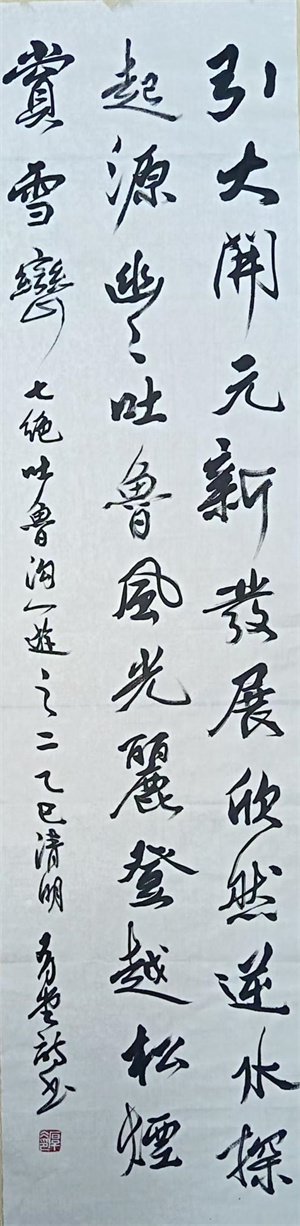 引大開元新發展欣然逆水探
起源幽〻吐魯風光麗登越松煙
賞雪巒 七絕吐魯溝一遊之二乙巳清明 詩書